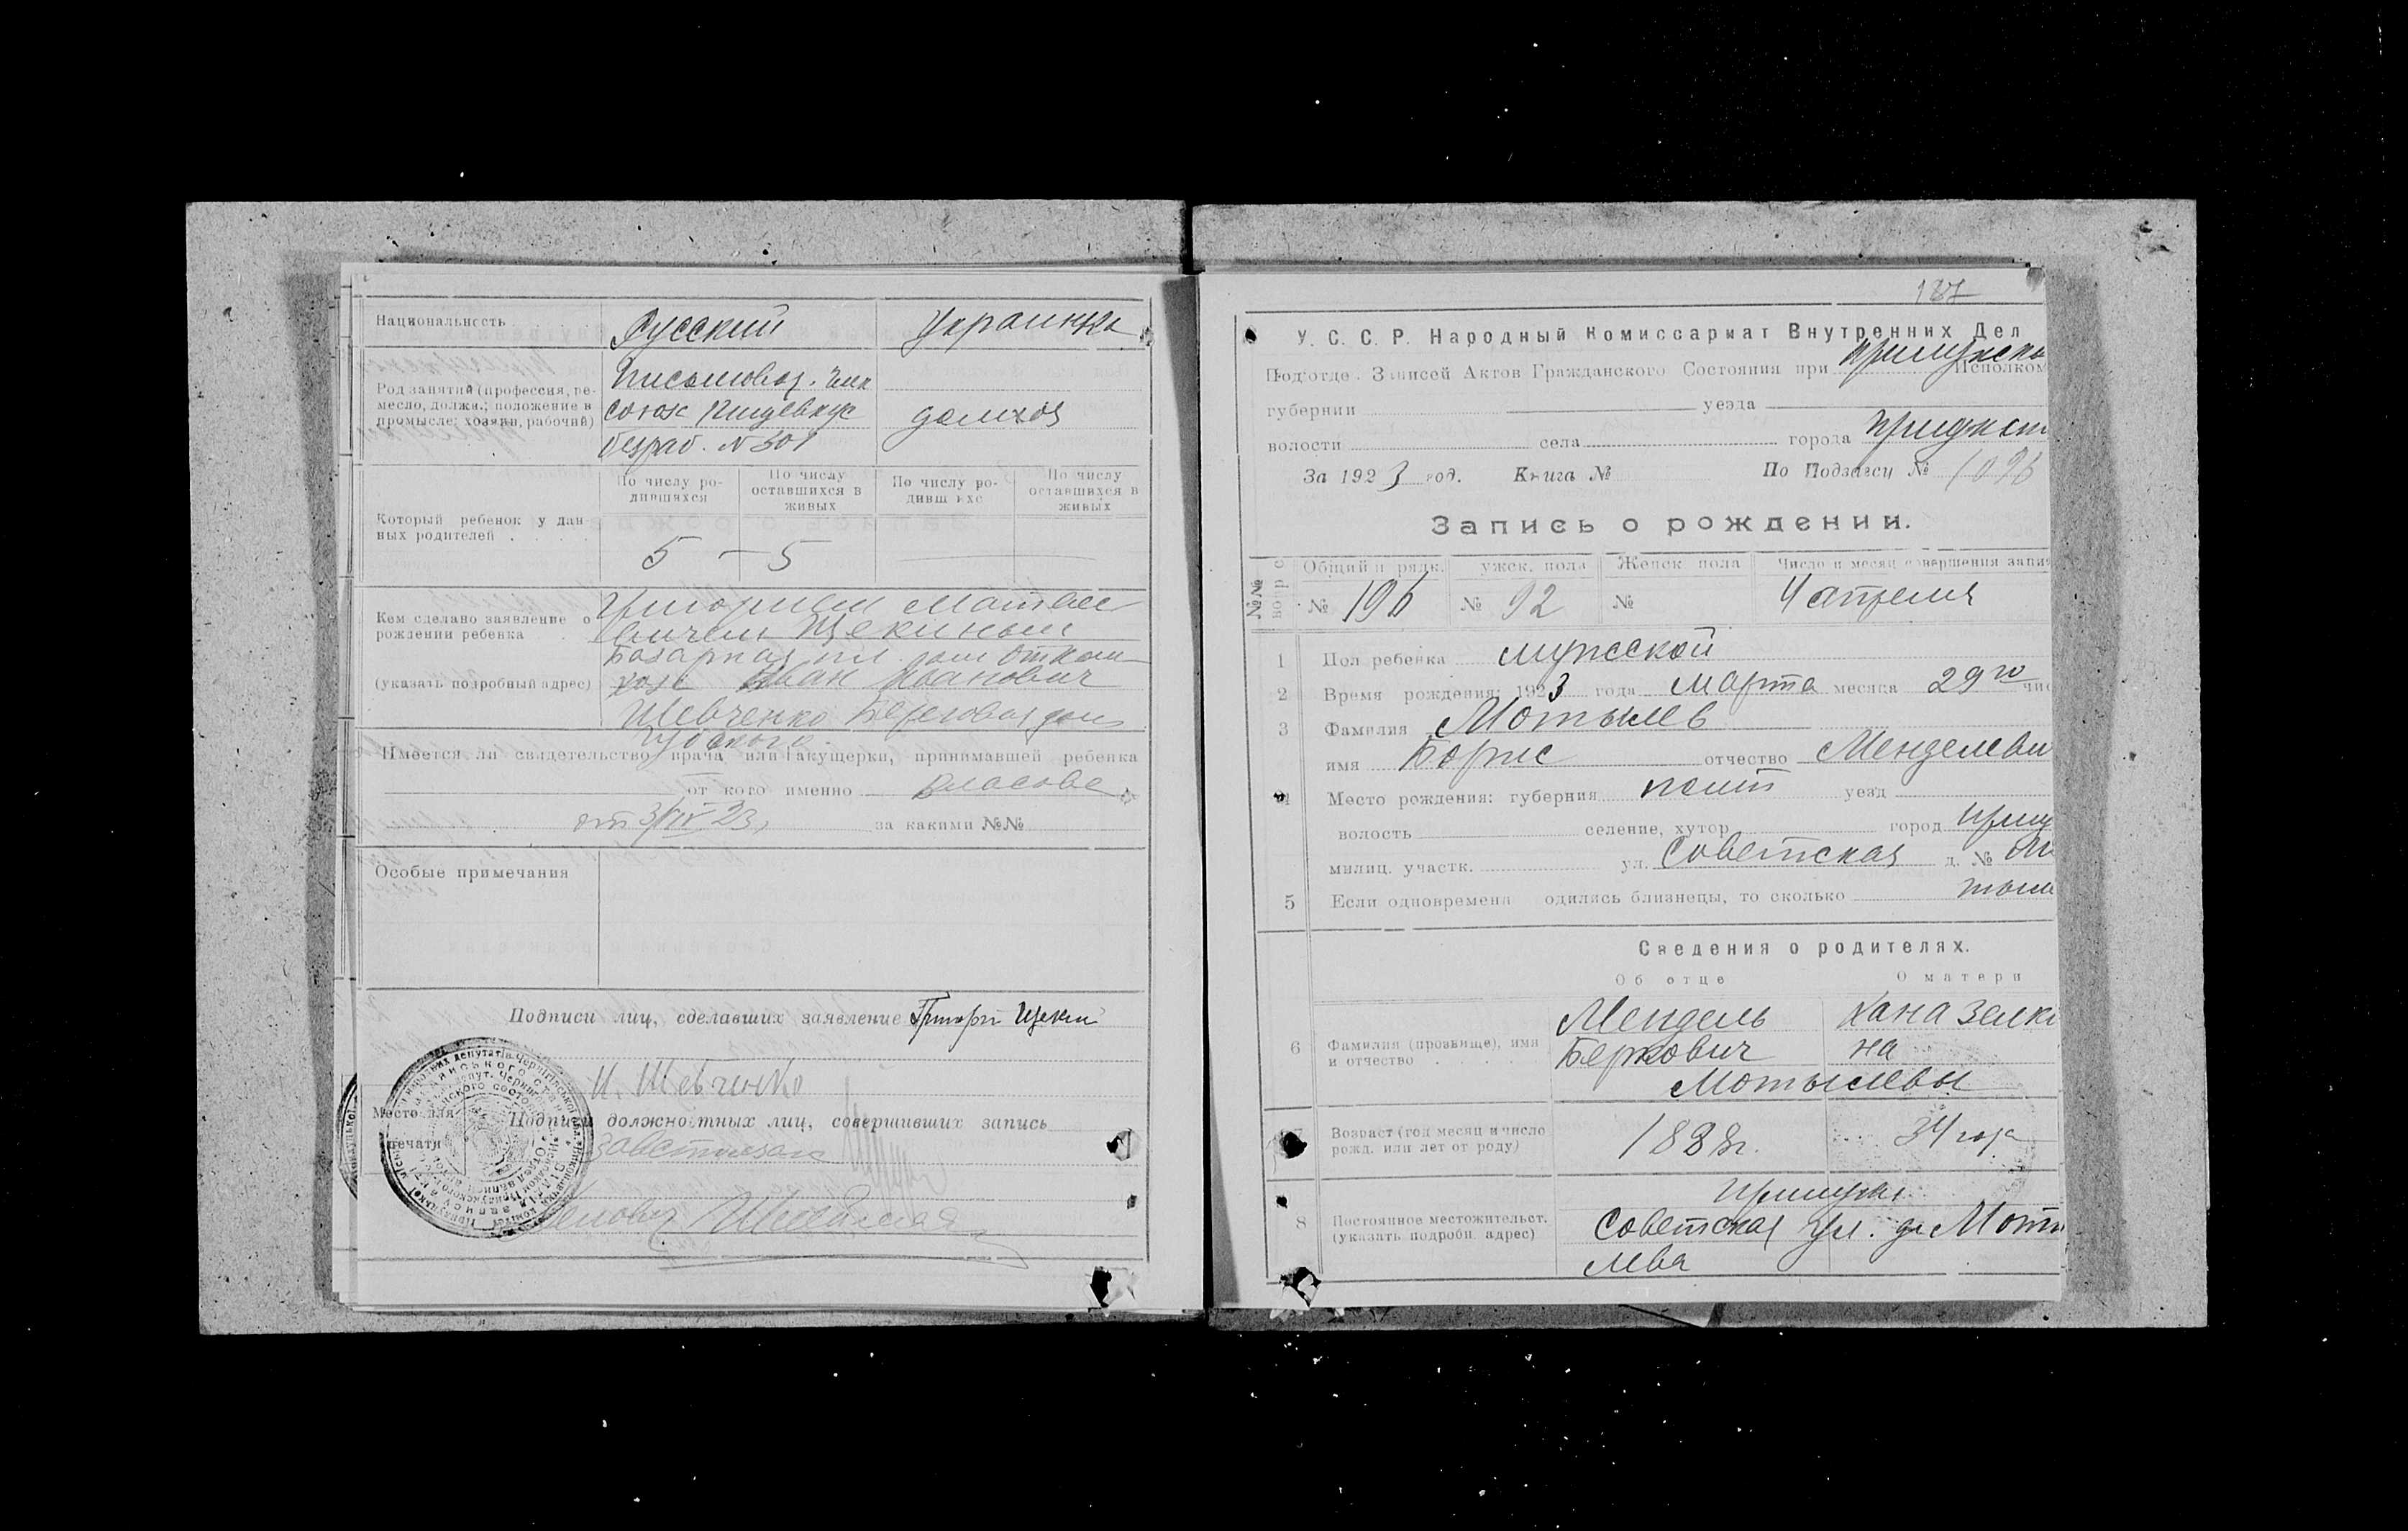 Национальность Русский Украинка
Род занятий (профессия, ре-
месло, должн.; положение в
промысле: хозяин, рабочий)
союз
безраб. № 301
Который ребенок у дан-
ных родителей . . . .
По числу ро-
дившихся
По числу
оставшихся в
живых
По числу ро-
дивш хс
По числу
оставшихся в
живых
5 — 5
Кем сделано заявление о
рождении ребенка
(указать подробный адрес)
Григорием Матвее-
вичем Щекиным
Базарная пл. дом
Иван Иванович
Шевченко Береговая дом
Имеется ли свидетельство врача или акушерки, принимавшей ребенка
от кого именно Власова
от 3/IV 23, за какими №№
Особые примечания
Подписи лиц, сделавших заявление Григорий Щекин
И. Шевченко
Место для
печати
Подписи должностных лиц, совершивших запись
187
У. С. С. Р. Народный Комиссариат Внутренних Дел
Подотде . Записей Актов Гражданского Состояния при Прилукско Исполком
губернии уезда
волости села города
За 1923 год. Книга № По Подзагсу № 1096
Запись о рождении.
№№
Общий п рядк. ужск. пола Женск пола Число и месяц совершения запи
№ 196 № 92 № 4 апреля
1 Пол ребенка мужской
2 Время рождения: 1923 года Марта месяца 29го чис
3 Фамилия Мотылев
имя Борис отчество Менделеви
4 Место рождения: губерния Полт уезд
волость селение, хутор город Прилу
милиц. участк. ул. Советская д. № Мо
тыле
5 Если одновремен одились близнецы, то сколько
Сведения о родителях.
Об отце О матери
6 Фамилия (прозвище), имя
и отчество . . . .
Мендель
Беркович
Хана Зелко
на
Мотылевы
7 Возраст (год месяц и число
рожд. или лет от роду)
1888г. 34 года
8 Постоянное местожительст.
(указать подробн. адрес)
Прилуки
Советская ул. д. Моты
лева